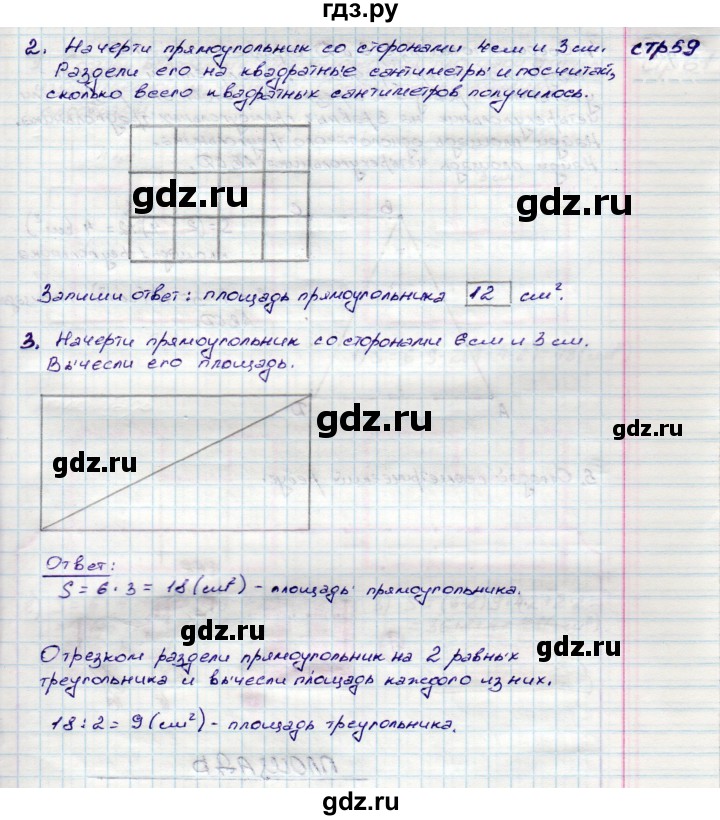 гдз.ру
2. Начерти прямоугольник со сторонами 4см и 3см. стр59
Раздели его на квадратные сантиметры и посчитай,
сколько всего квадратных сантиметров получилось.
gdz.ru
gdz.ru
Запиши ответ: площадь прямоугольника 12 см².
3. Начерти прямоугольник со сторонами 6см и 3 см.
Вычесли его площадь.
gdz.ru
gdz.ru
gdz.ru
Ответ:
S = 6 · 3 = 18 (см²) - площадь прямоугольника.
gdz.ru
gdz.ru
Отрезком раздели прямоугольник на 2 равных
треугольника и вычесли площадь каждого из них.
18 : 2 = 9 (см²) - площадь треугольника.
gdz.ru
gdz.ru
gdz.ru